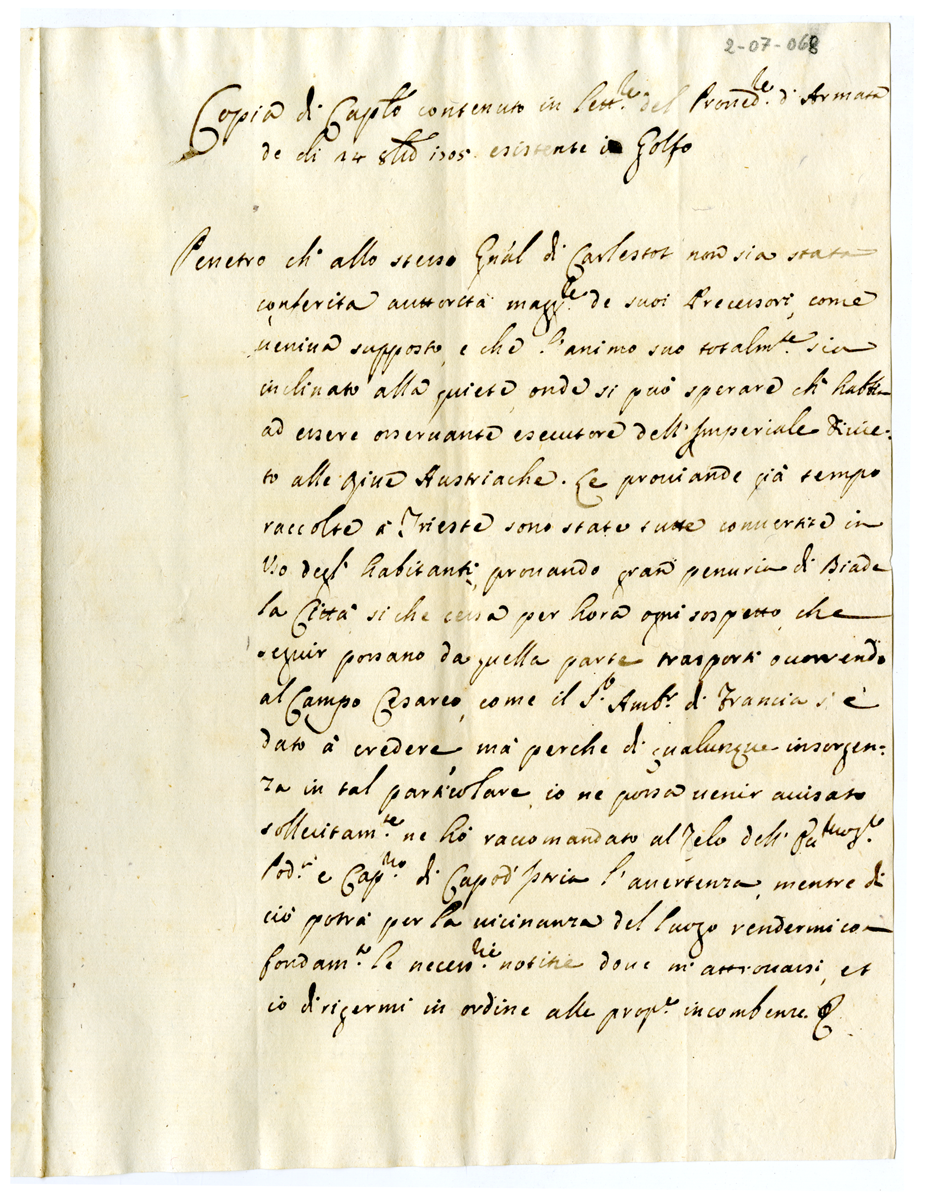 2-07-068
Copia di Cap.lo contenuto in lett.re del Proved.re d'Armata
de di 14 8bre 1705. esistente in Golfo
Penetro ch'allo stesso Gnãl di Carlestot non sia stata
conferita auttorità magg.re de suoi Precessori, come
veniva supposto, e che l'animo suo totalm.te sia
inclinato alla quiete, onde si può sperare ch'habbia
ad essere osservante esecutore dell'Imperiale Divie-
to alle Rive Austriache. Le proviande già tempo
raccolte à Trieste sono state tutte convertite in
Uso degl'habitanti, provando gran penuria di Biade
la Città, si che cessa per hora ogni sospetto, che
seguir possano da quella parte trasporti occorrendo
al Campo Cesareo, come il S.r Amb.r di Francia s'è
dato à credere, mà perche di qualunque insorgen-
za in tal particolare io ne possa venir avisato
sollecitam.te ne hò raccomandato al Zelo dell'
Pod.à e Cap.nio di Capod'Istria l'avertenza, mentre di
ciò potrà per la vicinanza del luogo rendermi con
fondam.to le necess.rie notitie dove m'attrovassi, et
io dirigermi in ordine alle prop.e incombenze.